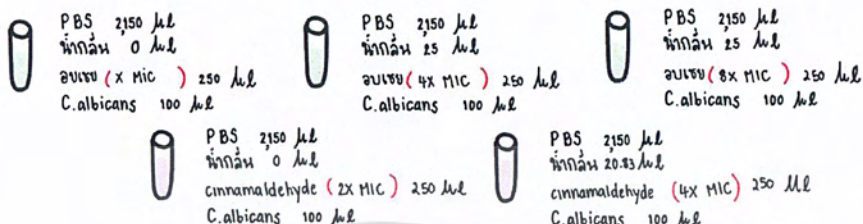 PBS 2,150 µl
น้ำกลั่น 0 µl
อบเชย (X MIC ) 250 µl
C.albicans 100 µl
PBS 2,150 µl
น้ำกลั่น 25 µl
อบเชย (4X MIC ) 250 µl
C.albicans 100 µl
PBS 2,150 µl
น้ำกลั่น 25 µl
อบเชย (8X MIC ) 250 µl
C.albicans 100 µl
PBS 2,150 µl
น้ำกลั่น 0 µl
cinnamaldehyde (2X MIC) 250 µl
C.albicans 100 µl
PBS 2,150 µl
น้ำกลั่น 20.83 µl
cinnamaldehyde (4X MIC) 250 µl
C.albicans 100 µl